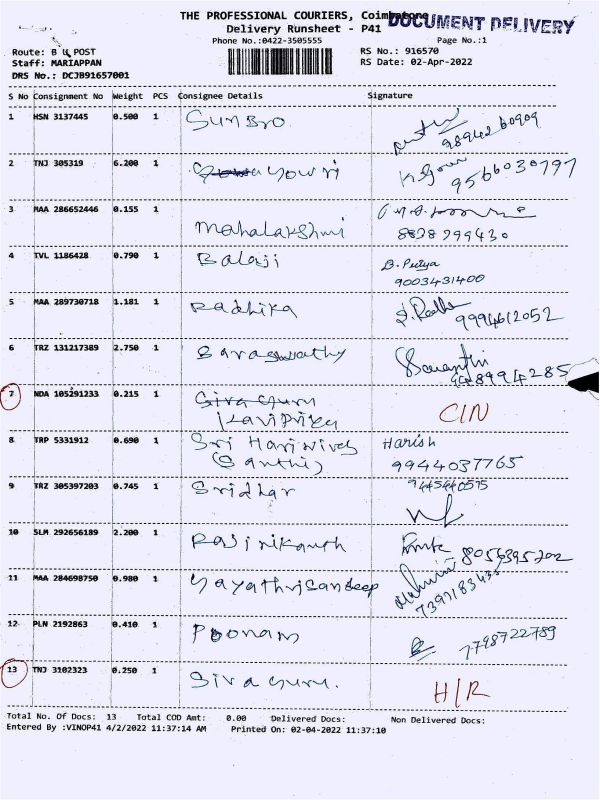 THE PROFESSIONAL COURIERS, Coimbatore
DOCUMENT DELIVERY
Delivery Runsheet - P41
Phone No.:0422-3505555
Page No.:1
Route: B U POST
RS No.: 916570
Staff: MARIAPPAN
RS Date: 02-Apr-2022
DRS No.: DCJB91657001
S No Consignment No Weight PCS Consignee Details Signature
1 HSN 3137445 0.500 1 SUNBRO
9894260909
2 TNJ 305319 6.200 1 Gowri
9566030797
3 MAA 286652446 0.155 1 Mahalakshmi
8838799430
4 TVL 1186428 0.790 1 Balaji B. Priya
9003431400
5 MAA 289730718 1.181 1 Radhika 9994612052
6 TRZ 131217389 2.750 1 Saraswathy
7 NDA 105291233 0.215 1 Siva Guru
Kavipriya CIN
8 TRP 5331912 0.690 1 Sri Harinivas Harish
(Santhi) 9944037765
9 TRZ 305397203 0.745 1 Sridhar 9445440575
10 SLM 292656189 2.200 1 Rajinikanth 8056395202
11 MAA 284698750 0.980 1 Gayathri Sandeep
12 PLN 2192863 0.410 1 Poonam 7798722789
13 TNJ 3102323 0.250 1 Siva Guru.
H/R
Total No. Of Docs: 13 Total COD Amt: 0.00 Delivered Docs: Non Delivered Docs:
Entered By :VINOP41 4/2/2022 11:37:14 AM Printed On: 02-04-2022 11:37:10